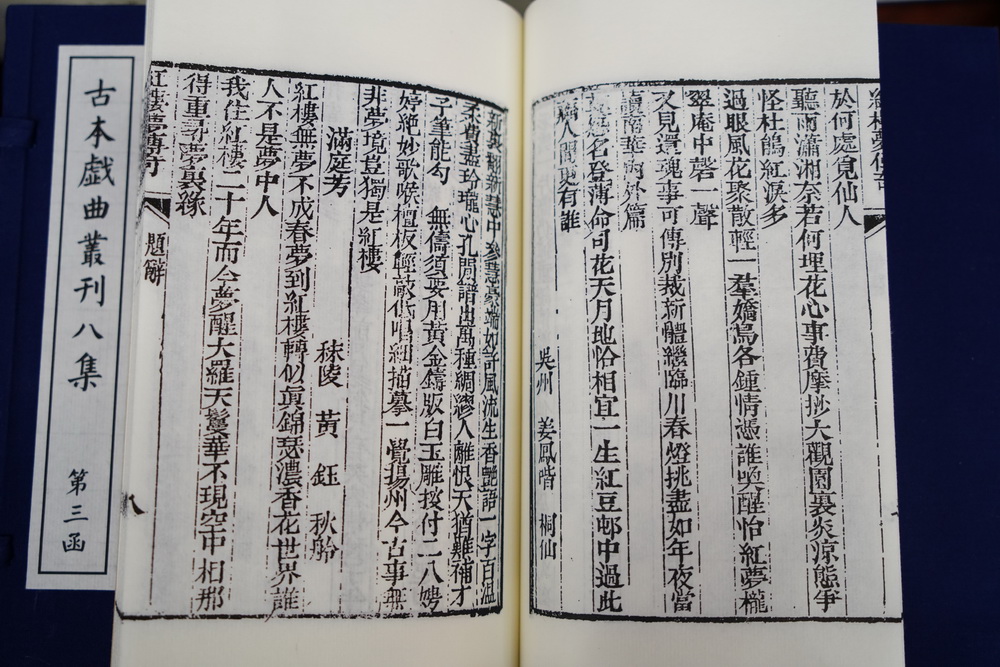 古本戲曲叢刊八集
第三函
於何處覓仙人
聽雨瀟湘奈若何埋花心事費摩抄大觀園裏炎涼態爭
怪杜鵑紅淚多
過眼風花聚散輕一羣嬌鳥各鍾情憑誰喚醒怡紅夢櫳
翠庵中磬一聲
又見還魂事可傳別裁新體繼臨川春燈挑盡如年夜當
讀南華內外篇
名登薄命司花天月地恰相宜一生紅豆邨中過此
病人間更有誰
吳州 姜鳳喈 桐仙
端如許風流生香艷語一字百溫
柔費盡玲瓏心孔閒譜出萬種綢繆人離恨天猶難補才
子筆能勾 無儔須要用黃金鑄版白玉雕按付二八娉
婷絶妙歌喉檀板輕敲低唱細描摹一覺揚州今古事無
非夢境豈獨是紅樓
滿庭芳
秣陵 黃 鈺 秋舲
紅樓無夢不成春夢到紅樓轉似眞錦瑟濃香花世界誰
人不是夢中人
我住紅樓二十年而今夢醒大羅天鬘華不現空中相那
得重尋夢裏緣
紅樓夢傳奇 題辭 八